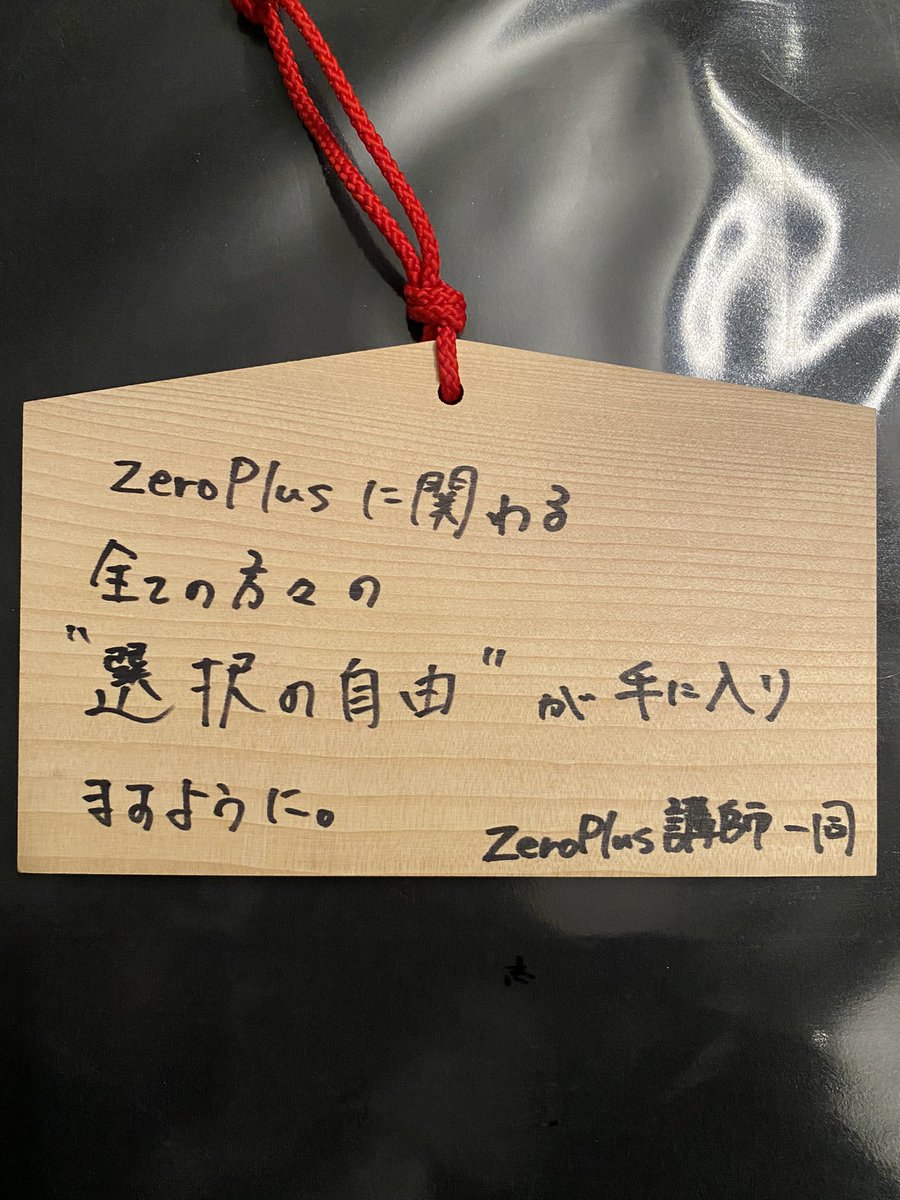 ZeroPlusに関わる
全ての方々の
"選択の自由"が手に入り
ますように。
ZeroPlus講師一同